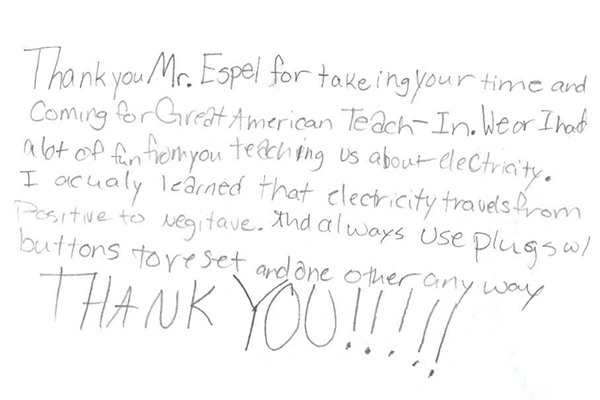 Thank you Mr. Espel for takeing your time and
Coming for Great American Teach-In. We or I had
a lot of fun from you teaching us about electricity.
I acualy learned that electricity travels from
Positive to negitave. And always use plugs w/
buttons to reset and one other any way
THANK YOU!!!!!!